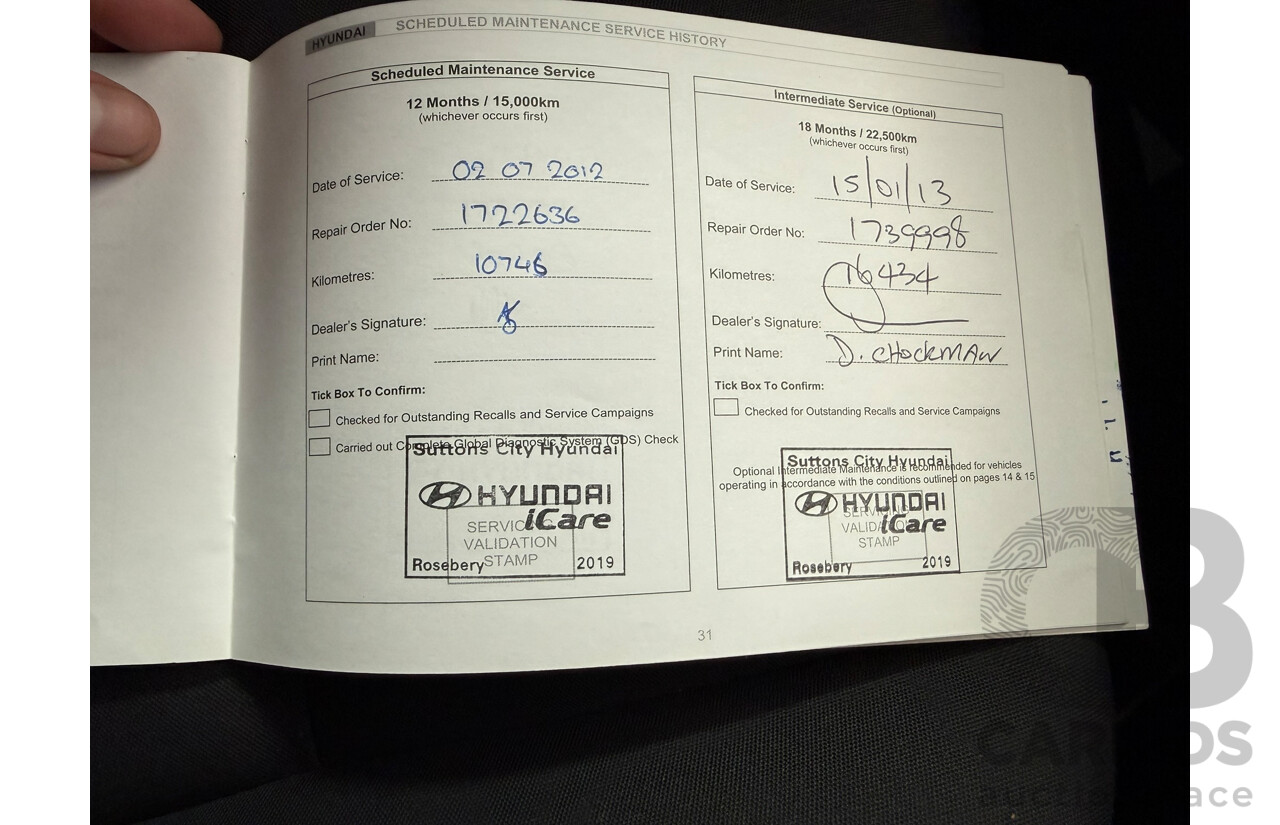 HYUNDAI SCHEDULED MAINTENANCE SERVICE HISTORY
Scheduled Maintenance Service
12 Months / 15,000km
(whichever occurs first)
Date of Service: 02 07 2012
Repair Order No: 1722636
Kilometres: 10746
Dealer's Signature:
Print Name:
Tick Box To Confirm:
Checked for Outstanding Recalls and Service Campaigns
Carried out Complete Global Diagnostic System (GDS) Check
Suttons City Hyundai
HYUNDAI
iCare
SERVICING
VALIDATION
STAMP
Rosebery 2019
Intermediate Service (Optional)
18 Months / 22,500km
(whichever occurs first)
Date of Service: 15/01/13
Repair Order No: 1739998
Kilometres: 16434
Dealer's Signature:
Print Name: D. CHOCKMAN
Tick Box To Confirm:
Checked for Outstanding Recalls and Service Campaigns
Optional Intermediate Maintenance is recommended for vehicles
operating in accordance with the conditions outlined on pages 14 & 15
Suttons City Hyundai
HYUNDAI
iCare
SERVICING
VALIDATION
STAMP
Rosebery 2019
31